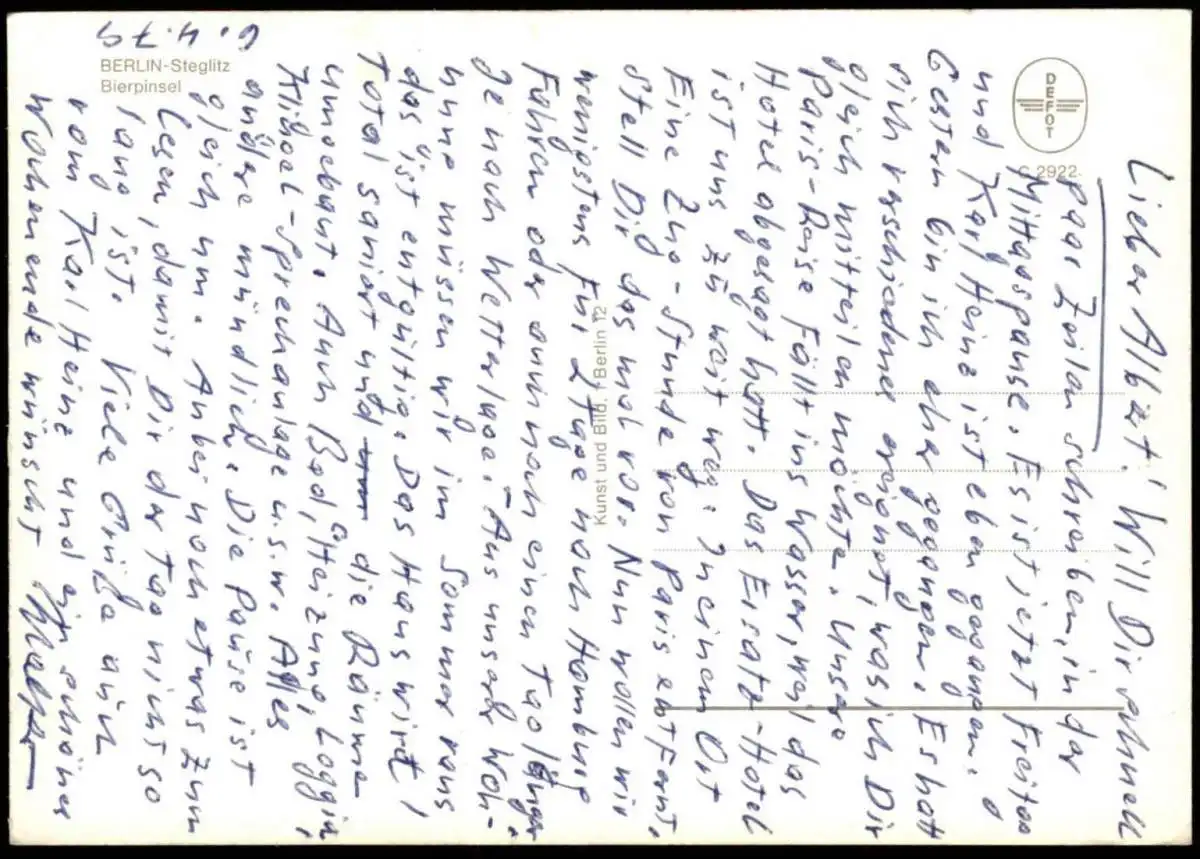 6. 4. 79
BERLIN-Steglitz
Bierpinsel
DEFOT
C 2922
Kunst und Bild, 1 Berlin 12
Lieber Albät! Will Dir schnell
paar Zeilen schreiben, in der
Mittagspause. Es ist jetzt Freitag
und Karl Heinz ist eben gegangen.
Gestern bin ich eher gegangen. Es hatt
sich verschiedenes ereignet, was ich Dir
gleich mitteilen möchte. Unsere
Paris-Reise fällt ins Wasser, weil das
Hotel abgesagt hatt. Das Ersatz-Hotel
ist uns zu weit weg. In einem Ort
Eine Zug-Stunde von Paris entfernt.
Stell Dir das mal vor. Nun wollen wir
wenigstens für 2 Tage nach Hamburg
Fahren oder auch noch einen Tag länger.
Je nach Wetterlage. Aus unserer Woh-
nung müssen wir im Sommer raus
das ist entgültig. Das Haus wird
Total saniert und die Räume
umgebaut. Auch Bad, Heizung, Loggia,
Klingel-Sprechanlage u.s.w. Alles
andere mündlich. Die Pause ist
gleich um. Anbei noch etwas zum
lesen, damit Dir der Tag nicht so
lang ist. Viele Grüße auch
vom Karl Heinz und ein schönes
Wochenende wünscht